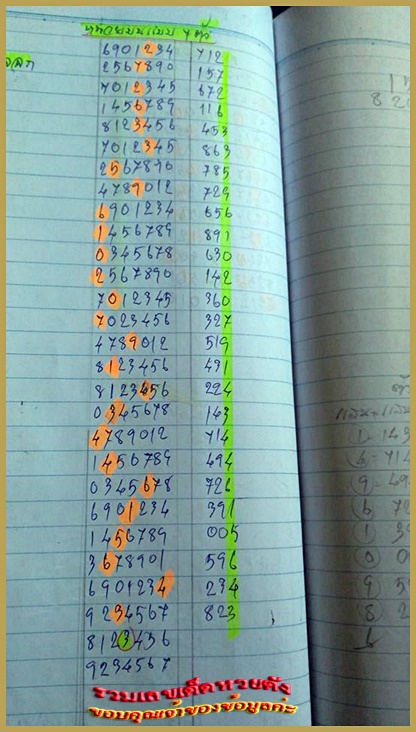 หวยบนแบบ 7 ตัว
6901234 712
2567890 157
7012345 672
1456789 116
8123456 453
7012345 863
2567890 785
4789012 729
6901234 656
1456789 891
0345678 630
2567890 142
7012345 360
7023456 327
4789012 519
8123456 491
8123456 224
0345678 143
4789012 714
1456789 494
0345678 726
6901234 391
1456789 005
3678901 596
6901234 234
9234567 823
8123456
9234567
รวมเลขเด็ดหวยดัง
ขอบคุณเจ้าของข้อมูลค่ะ